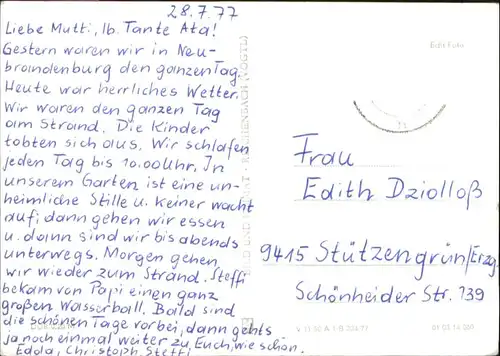 28.7.77
Liebe Mutti, lb. Tante Ata!
Gestern waren wir in Neu-
brandenburg den ganzen Tag.
Heute war herrliches Wetter.
Wir waren den ganzen Tag
am Strand. Die Kinder
tobten sich aus. Wir schlafen
jeden Tag bis 10.00 Uhr. In
unserem Garten ist eine un-
heimliche Stille u. keiner wacht
auf; dann gehen wir essen
u. dann sind wir bis abends
unterwegs. Morgen gehen
wir wieder zum Strand. Steffi
bekam von Papi einen ganz
großen Wasserball. Bald sind
die schönen Tage vorbei, dann gehts
ja noch einmal weiter zu Euch, wie schön.
Edda, Christoph, Steffi
BILD UND REICHENBACH (VOGTL)
Echt Foto
Frau
Edith Dziolloß
9415 Stützengrün/Erzg.
Schönheider Str. 139